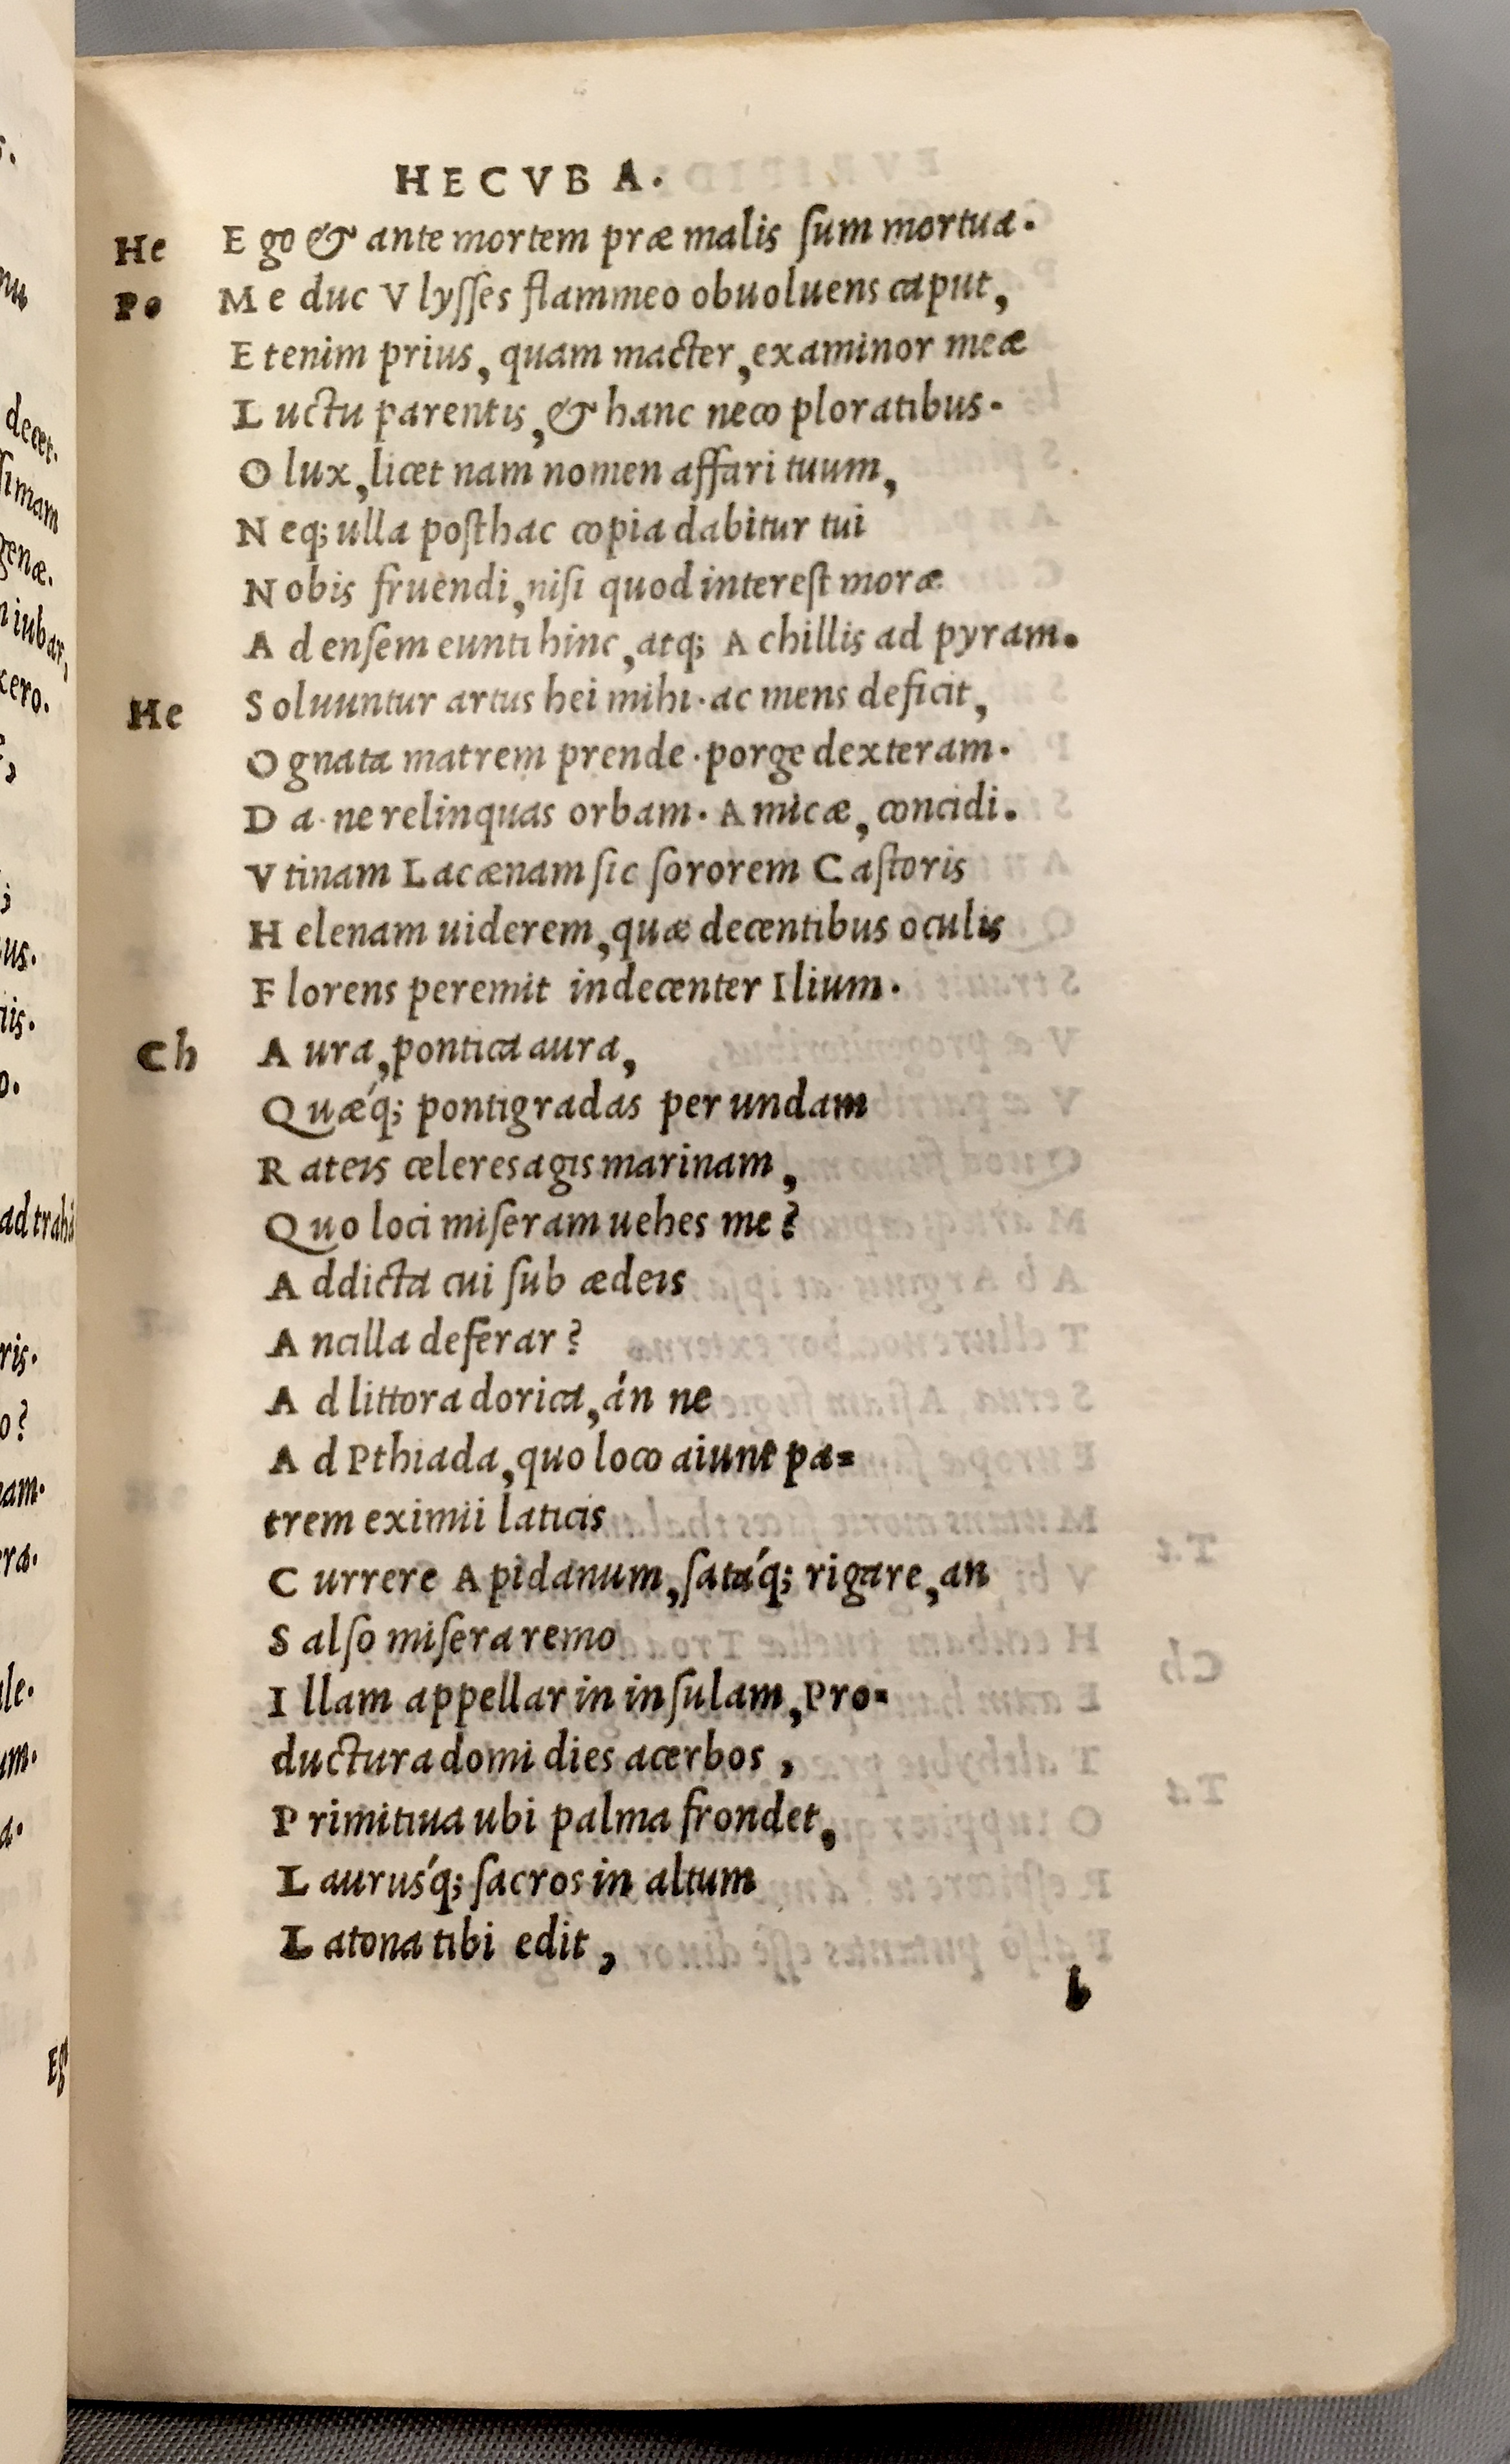 HECVBA.
He Ego & ante mortem præ malis ſum mortua.
Po Me duc Vlyſſes flammeo obuoluens caput,
Etenim prius, quam macter, examinor meæ
Luctu parentis, & hanc neco ploratibus.
O lux, licet nam nomen affari tuum,
Neq; ulla poſthac copia dabitur tui
Nobis fruendi, niſi quod intereſt moræ
Ad enſem eunti hinc, atq; Achillis ad pyram.
He Soluuntur artus hei mihi. ac mens deficit,
O gnata matrem prende. porge dexteram.
Da. ne relinquas orbam. Amicæ, concidi.
Vtinam Lacænam ſic ſororem Caſtoris
Helenam uiderem, quæ decentibus oculis
Florens peremit indecenter Ilium.
Ch Aura, pontica aura,
Quǽq; pontigradas per undam
Rateis celeres agis marinam,
Quo loci miſeram uehes me?
Addicta cui ſub ædeis
Ancilla deferar?
Ad littora dorica, án ne
Ad Pthiada, quo loco aiunt pa=
trem eximii laticis
Currere Apidanum, ſatáq; rigare, an
Salſo miſera remo
Illam appellar in inſulam, Pro=
ductura domi dies acerbos,
Primitiua ubi palma frondet,
Lauruśq; ſacros in altum
Latona tibi edit,
b
decet.
genæ.
iubar,
xero.
ad trahi